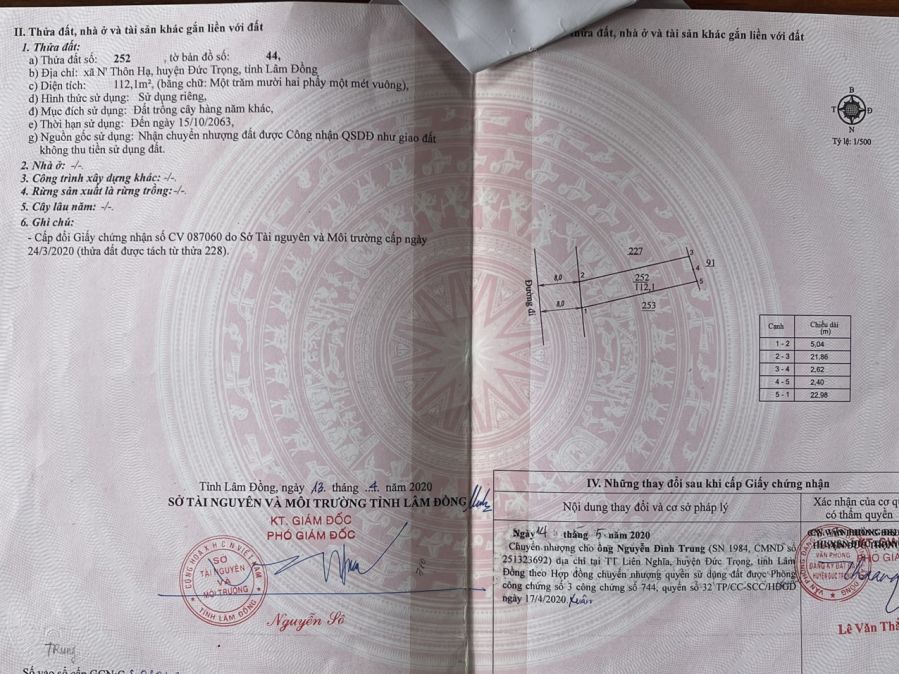 II. Thửa đất, nhà ở và tài sản khác gắn liền với đất
1. Thửa đất:
a) Thửa đất số: 252 , tờ bản đồ số: 44,
b) Địa chỉ: xã N' Thôn Hạ, huyện Đức Trọng, tỉnh Lâm Đồng
c) Diện tích: 112,1m², (bằng chữ: Một trăm mười hai phẩy một mét vuông),
d) Hình thức sử dụng: Sử dụng riêng,
đ) Mục đích sử dụng: Đất trồng cây hàng năm khác,
e) Thời hạn sử dụng: Đến ngày 15/10/2063,
g) Nguồn gốc sử dụng: Nhận chuyển nhượng đất được Công nhận QSDĐ như giao đất
không thu tiền sử dụng đất.
2. Nhà ở: -/-.
3. Công trình xây dựng khác: -/-.
4. Rừng sản xuất là rừng trồng: -/-.
5. Cây lâu năm: -/-.
6. Ghi chú:
- Cấp đổi Giấy chứng nhận số CV 087060 do Sở Tài nguyên và Môi trường cấp ngày
24/3/2020 (thửa đất được tách từ thửa 228).
Tỉnh Lâm Đồng, ngày 13 tháng 4 năm 2020
SỞ TÀI NGUYÊN VÀ MÔI TRƯỜNG TỈNH LÂM ĐỒNG
KT. GIÁM ĐỐC
PHÓ GIÁM ĐỐC
CỘNG HÒA X H C N VIỆT NAM
SỞ
TÀI NGUYÊN
VÀ
MÔI TRƯỜNG
TỈNH LÂM ĐỒNG
Nguyễn Sô
Trung
Số vào sổ cấp GCN:
thửa đất, nhà ở và tài sản khác gắn liền với đất
B
T Đ
N
Tỷ lệ: 1/500
227
3
91
8,0
2
252
112,1
4
5
Đường đi
8,0
1
253
Cạnh Chiều dài (m)
1 - 2 5,04
2 - 3 21,86
3 - 4 2,62
4 - 5 2,40
5 - 1 22,98
IV. Những thay đổi sau khi cấp Giấy chứng nhận
Nội dung thay đổi và cơ sở pháp lý
Xác nhận của cơ qu
có thẩm quyền
Ngày 14 tháng 5 năm 2020
Chuyển nhượng cho ông Nguyễn Đình Trung (SN 1984, CMND số
251323692) địa chỉ tại TT Liên Nghĩa, huyện Đức Trọng, tỉnh Lâm
Đồng theo Hợp đồng chuyển nhượng quyền sử dụng đất được Phòng
công chứng số 3 công chứng số 744, quyển số 32 TP/CC-SCC/HĐGD
ngày 17/4/2020.
VĂN PHÒNG
ĐĂNG KÝ ĐẤT
HUYỆN ĐỨC TRỌNG
PHÓ GIÁ
Lê Văn Th